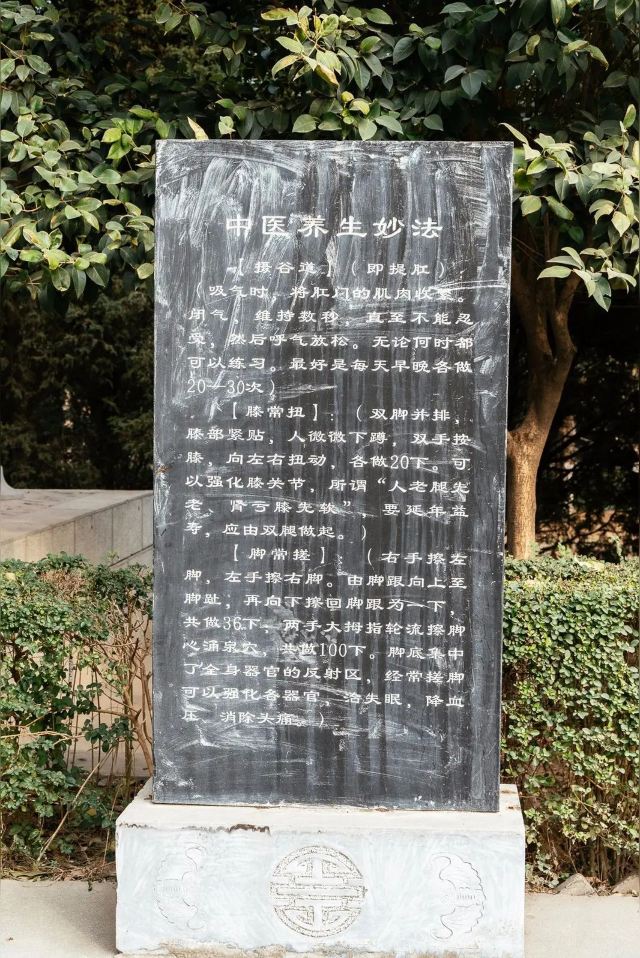 中医养生妙法
【摄谷道】（即提肛）：
（吸气时，将肛门的肌肉收紧。
闭气，维持数秒，直至不能忍
受，然后呼气放松。无论何时都
可以练习。最好是每天早晚各做
20—30次）
【膝常扭】：（双脚并排，
膝部紧贴，人微微下蹲，双手按
膝，向左右扭动，各做20下。可
以强化膝关节，所谓“人老腿先
老、肾亏膝先软”，要延年益
寿，应由双腿做起。）
【脚常搓】：（右手擦左
脚，左手擦右脚。由脚跟向上至
脚趾，再向下擦回脚跟为一下，
共做36下。两手大拇指轮流擦脚
心涌泉穴，共做100下。脚底集中
了全身器官的反射区，经常搓脚
可以强化各器官，治失眠，降血
压，消除头痛。）